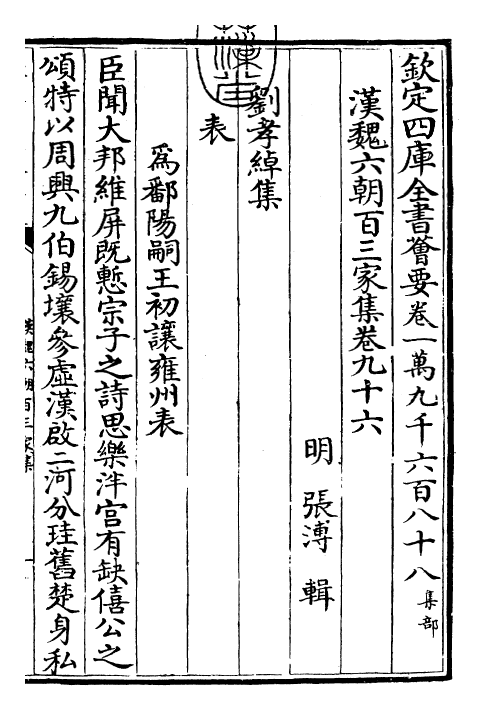 欽定四庫全書薈要卷一萬九千六百八十八集部
漢魏六朝百三家集卷九十六
明 張溥 輯
劉孝綽集
表
為鄱陽嗣王初讓雍州表
臣聞大邦維屏既慙宗子之詩思樂泮宫有缺僖公之
頌特以周興九伯錫壤參虛漢啟二河分珪舊楚身私
漢魏六朝百三家集